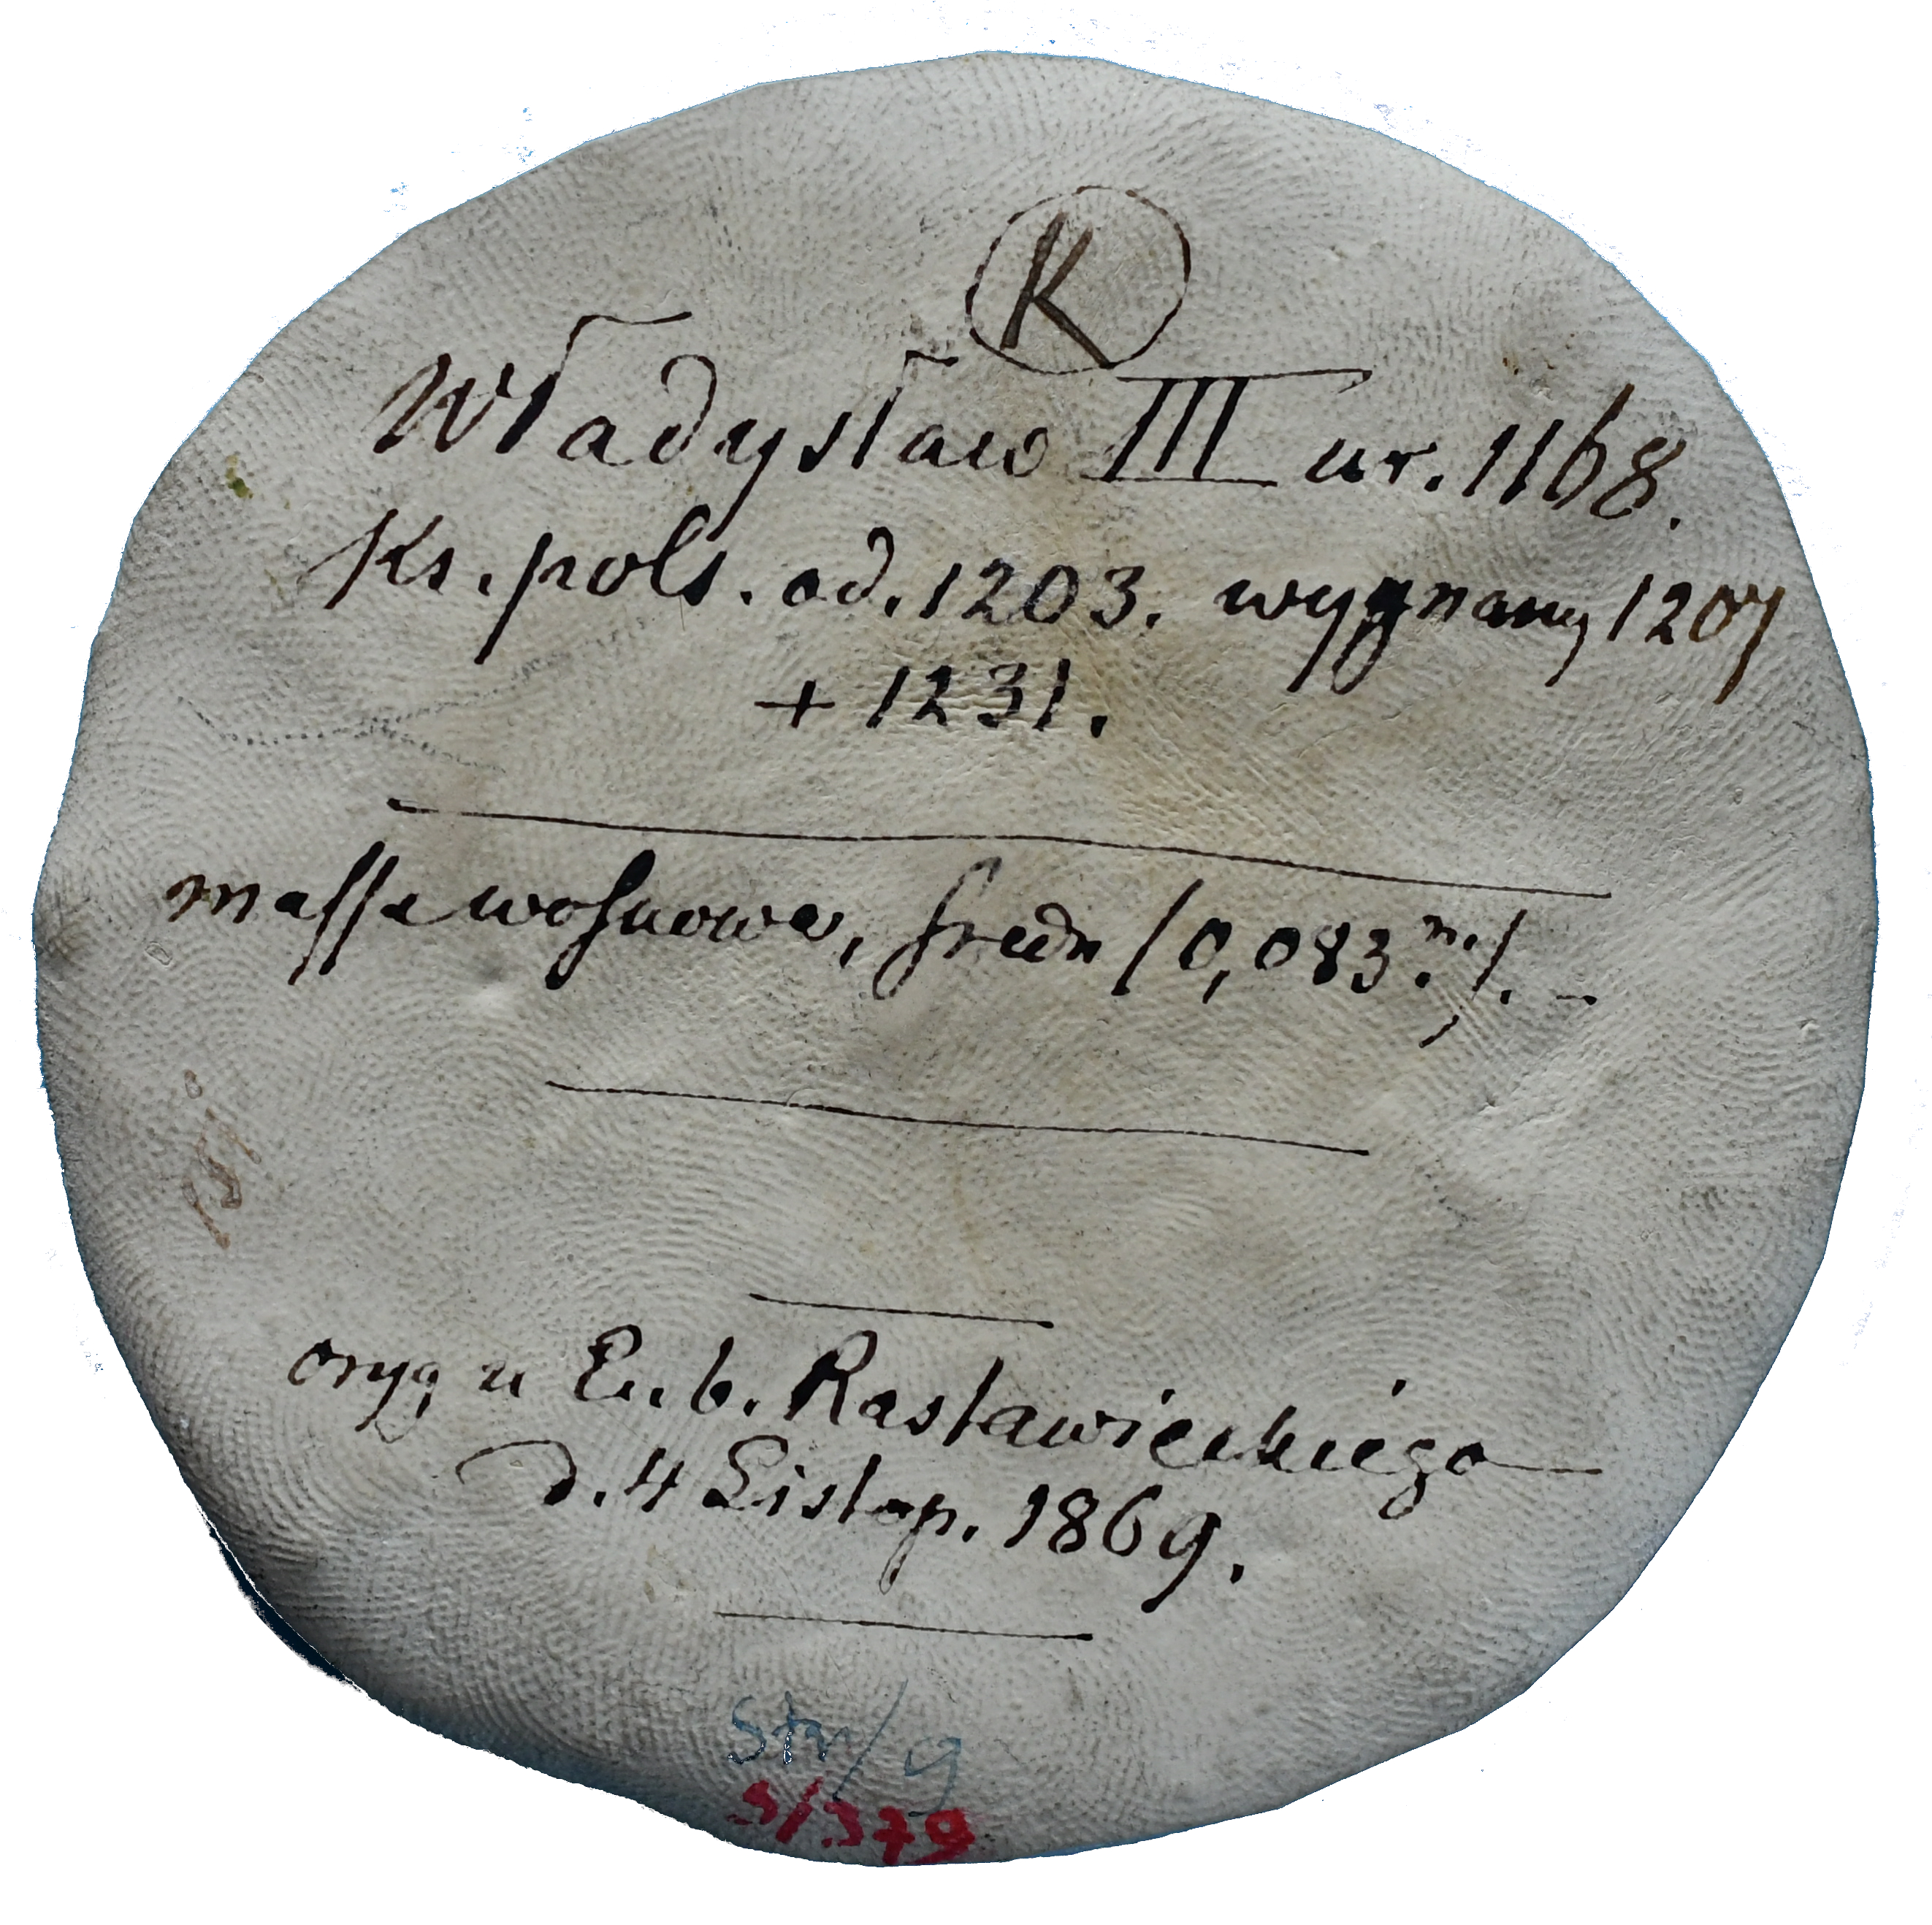 K
Władysław III ur. 1168.
Ks. pols. od. 1203. wygnany 1207
+ 1231.
massa woskowa, średn (0,083 m.). -
oryg u E. b. Rastawieckiego
d. 4 Listop. 1869.
Str/g
S/379